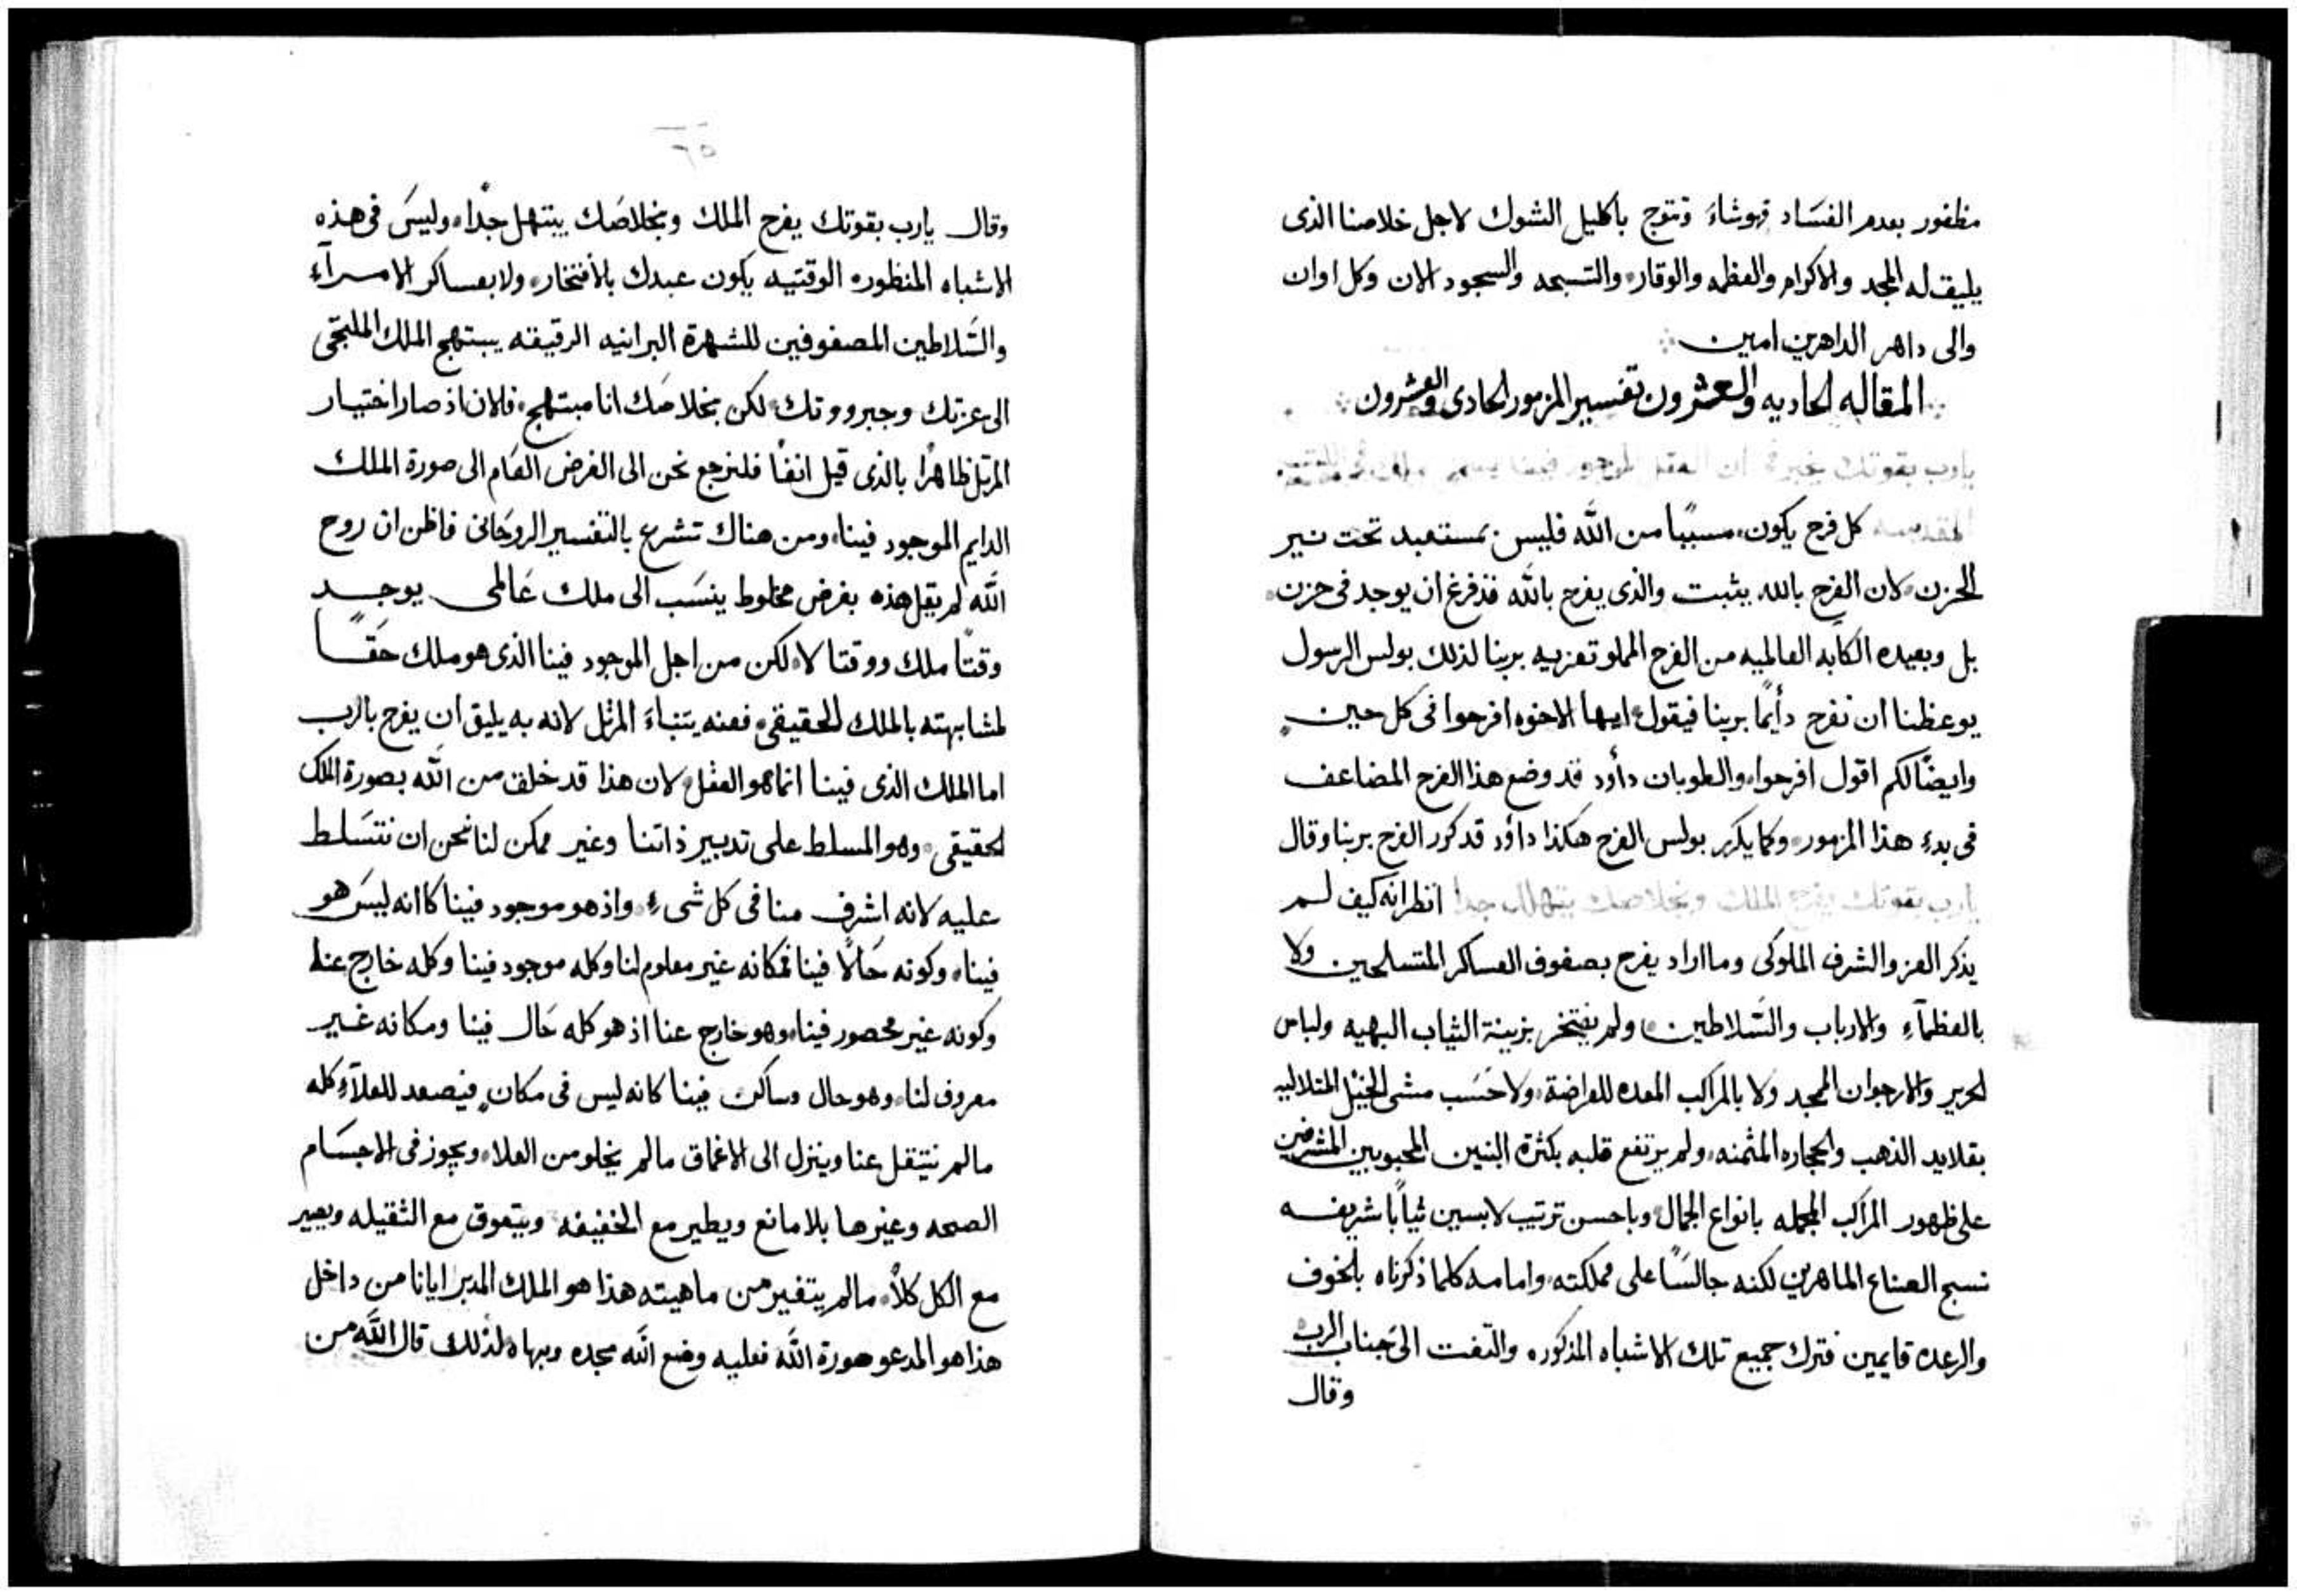 مظفور بعدم الفسَاد فهوشاءَ وتتوج باكليل الشوك لاجل خلاصنا الذى
يليق له المجد والاكرام والعظمه والوقار والتسبحه والسجود الان وكل اوان
والى داهر الداهرين امين
المقاله الحاديه والعشرون تفسير المزمور الحادى والعشرون
يارب بقوتك ان العقل الموجود فينا
كل فرح يكون مسببًا من الله فليس بمستعبد تحت نير
الحزن لان الفرح بالله يثبت والذى يفرح بالله فذفرغ ان يوجد فى حزن
بل وبعيده الكابه العالميه من الفرح المملو تعزيه بربنا لذلك بولس الرسول
يوعظنا ان نفرح دأيمًا بربنا فيقول ايها الاخوه افرحوا فى كل حين
وايضًا لكم اقول افرحوا والطوبان دأود قد وضع هذا الفرح المضاعف
فى بدءِ هذا المزمور وكما يكرر بولس الفرح هكذا داوُد قد كور الفرح بربنا وقال
يارب بقوتك يفرح الملك وبخلاصك يتهلل جدا انظر انه كيف لم
يذكر العز والشرف الملوكى وما اراد يفرح بصفوف العساكر المتسلحين ولا
بالعظمآءِ والارباب والسَّلاطين ولم يفتخر بزينة الثياب البهيه ولباس
الحرير والارجوان الممجد ولا بالمراكب المعده للفراضة ولا حَسَب مشى الخيل المتلاليه
بقلايد الذهب والحجاره المثمنه ولم يرتفع قلبه بكثرة البنين المحبوبين المشرفين
على ظهور المراكب المجمله بانواع الجمال وباحسن ترتيب لابسين ثيابًا شريفه
نسج الصناع الماهرين لكنه جالسًا على مملكته وامامه كلما ذكرناه بالخوف
والرعده قايمين فترك جميع تلك الاشباه المذكوره والتفت الى جناب الرب
وقال
٦٥
وقال يارب بقوتك يفرح الملك وبخلاصَك يبتهل جدًا وليسَ فى هذه
الاشباه المنظوره الوقتيه يكون عبدك بالافتخار ولا بعساكر الامرآءِ
والسَّلاطين المصفوفين للشهرة البرانيه الرقيقه يبتهج الملك الملتجى
الى عزتك وجبرووتك لكن بخلاصَك انا مبتهج فلان اذ صار اختيار
المرتل ظاهرًا بالذى قيل انفًا فلنرجع نحن الى الغرض العَام الى صورة الملك
الدايم الموجود فينا ومن هناك تشرع بالتفسير الروحَانى فاظن ان روح
الله لم يقل هذه بغرض مخلوط ينسَب الى ملك عَالمى يوجد
وقتًا ملك ووقتا لا لكن من اجل الموجود فينا الذى هو ملك حَقًا
لمشابهته بالملك الحقيقى فعنه يتنباءَ المرتل لانه به يليق ان يفرح بالرب
اما الملك الذى فينا انما هو العقل لان هذا قد خلق من الله بصورة الملك
الحقيقى وهو المسلط على تدبير ذاتنا وغير ممكن لنا نحن ان نتسَلط
عليه لانه اشرف منا فى كل شىءِ واذ هو موجود فينا كاانه ليسَ هو
فينا وكونه حَالًا فينا فمكانه غير معلوم لنا وكله موجود فينا وكله خارج عنا
وكونه غير محصور فينا وهو خارج عنا اذ هو كله حَال فينا ومكانه غير
معروف لنا وهو حال وساكن فينا كانه ليس فى مكان فيصعد للعلآءِ كله
مالم نتيتقل عنا وينزل الى الاغماق مالم يخلو من العلاء ويجوز فى الاجسَام
الصحه وغيرها بلا مانع ويطير مع الخفيفه ويتعوق مع الثقيله ويصير
مع الكل كلاً مالم يتغير من ماهيته هذا هو الملك المدبر ايانا من داخل
هذا هو المدعو صورة الله فعليه وضع الله مجده وبهاه لذلك قال الله من